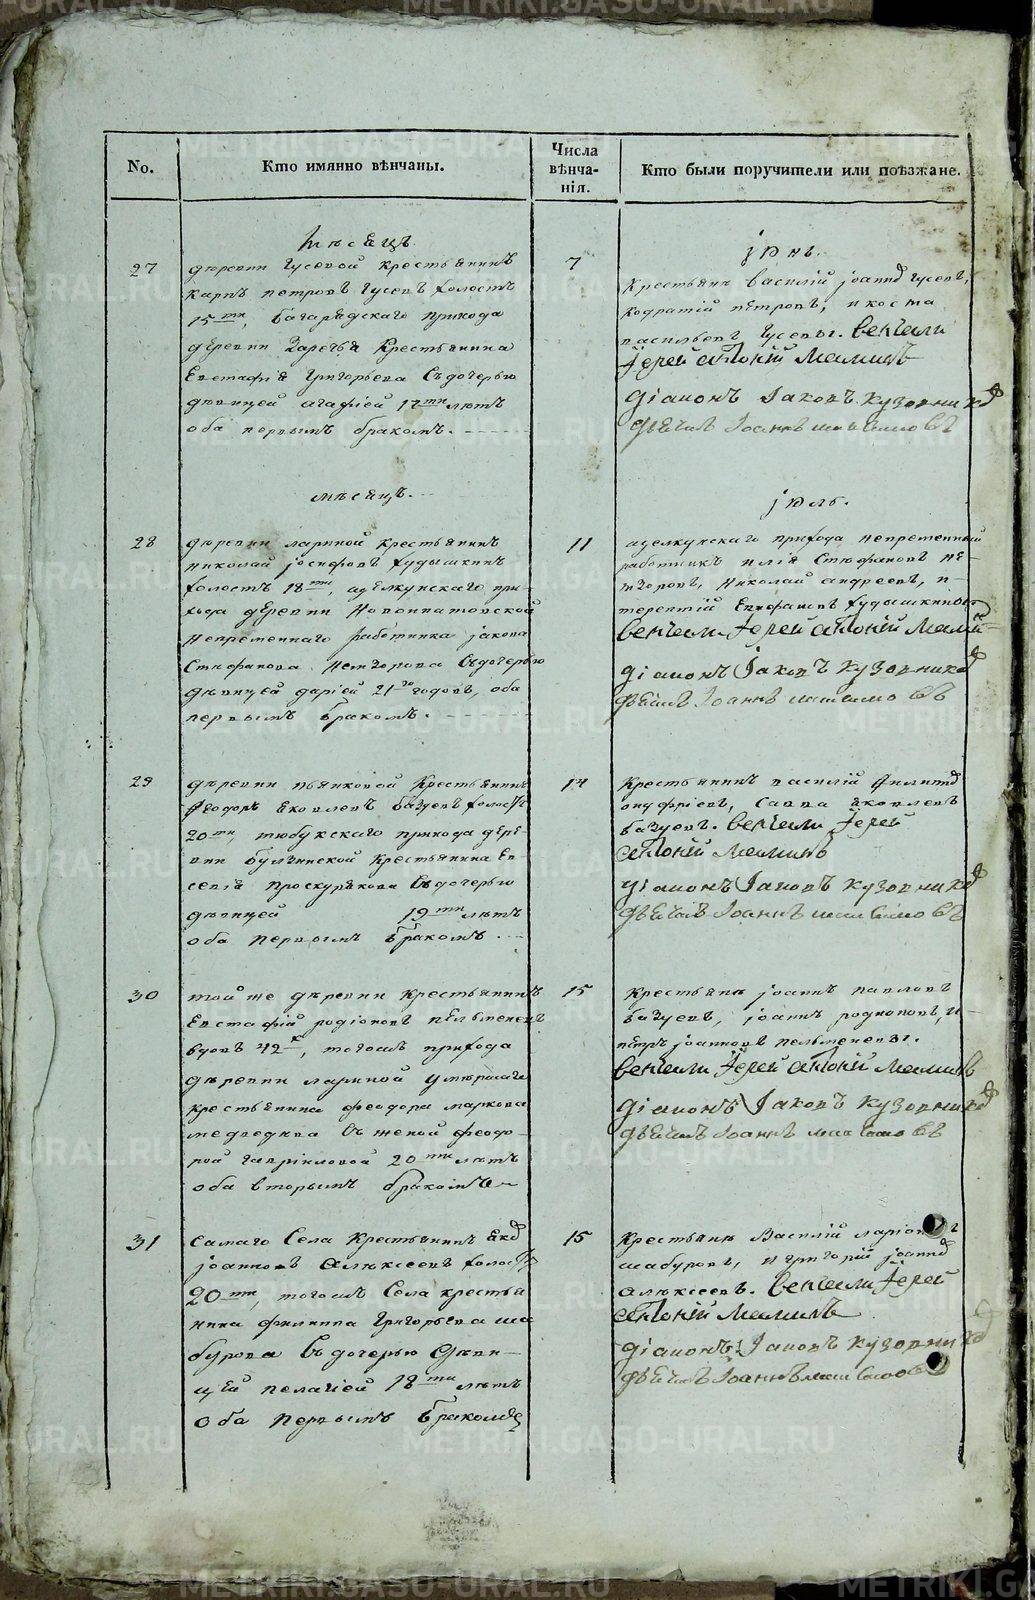 No.
Кто имянно вѣнчаны.
Числа
вѣнча-
нія.
Кто были поручители или поѣзжане.
Мѣсяцъ
іюнь.
27
деревни Гусевой крестьянинъ
карпъ петровъ Гусевъ холостъ
15ти, багарядскаго прихода
деревни Заречья крестьянина
Евстафія Григорьева съ дочерью
дѣвицей агафіей 17ти лѣтъ
оба первымъ бракомъ.
7
крестьяне василій іоанновъ Гусевъ,
кодратій петровъ, и коста
васильевъ Гусевы. Венчали
Іерей антоній Маминъ
діаконъ Іаковъ Кузовниковъ
дьячекъ Іоаннъ
мѣсяцъ.
іюль.
28
деревни лариной крестьянинъ
николай іосифовъ худышкинъ
холостъ 18ти, щелкунскаго при-
хода деревни Новоипатовской
непременнаго работника іакова
Стефанова съ дочерью
дѣвицей даріей 21го годовъ, оба
первымъ бракомъ.
11
щелкунскаго прихода непременный
работникъ илія Стефановъ
николай андреевъ, и
терентій Епифановъ худышкины
венчали Іерей антоній Маминъ
діаконъ Іаковъ Кузовниковъ
дьячекъ Іоаннъ
29
деревни пьянковой крестьянинъ
Феодоръ Яковлевъ базуевъ холостъ
20ти, тюбукскаго прихода дере
вни булзинской крестьянина Ев
севія проскурякова съ дочерью
дѣвицей 19ти лѣтъ
оба первымъ бракомъ.
14
крестьянинъ василій филиповъ
онуфріевъ, савва яковлевъ
базуевъ. венчали Іерей
антоній Маминъ
діаконъ Іаковъ Кузовниковъ
дьячекъ Іоаннъ
30
той же деревни крестьянинъ
Евстафій родіоновъ пельменевъ
вдовъ 42х, тогожъ прихода
деревни лариной умершаго
крестьянина феодора маркова
медведкова съ женой феодо-
рой гавріиловой 20ти лѣтъ
оба вторымъ бракомъ
15
крестьяне іоаннъ павловъ
базуевъ, іоаннъ родионовъ, и
петръ іоанновъ пельменевы.
венчали Іерей антоній Маминъ
діаконъ Іаковъ Кузовниковъ
дьячекъ Іоаннъ
31
самаго Села крестьянинъ
іоанновъ алѣксеевъ холостъ
20ти, тогожъ Села крестья
нина филипа Григорьева ша
бурова съ дочерью дѣви-
цей пелагіей 18ти лѣтъ
оба первымъ бракомъ
15
крестьяне Василій ларіоновъ
шабуровъ, и григорій іоанновъ
алѣксеевъ. венчали Іерей
антоній Маминъ
діаконъ Іаковъ Кузовниковъ
дьячекъ Іоаннъ
METRIKI.GASO-URAL.RU